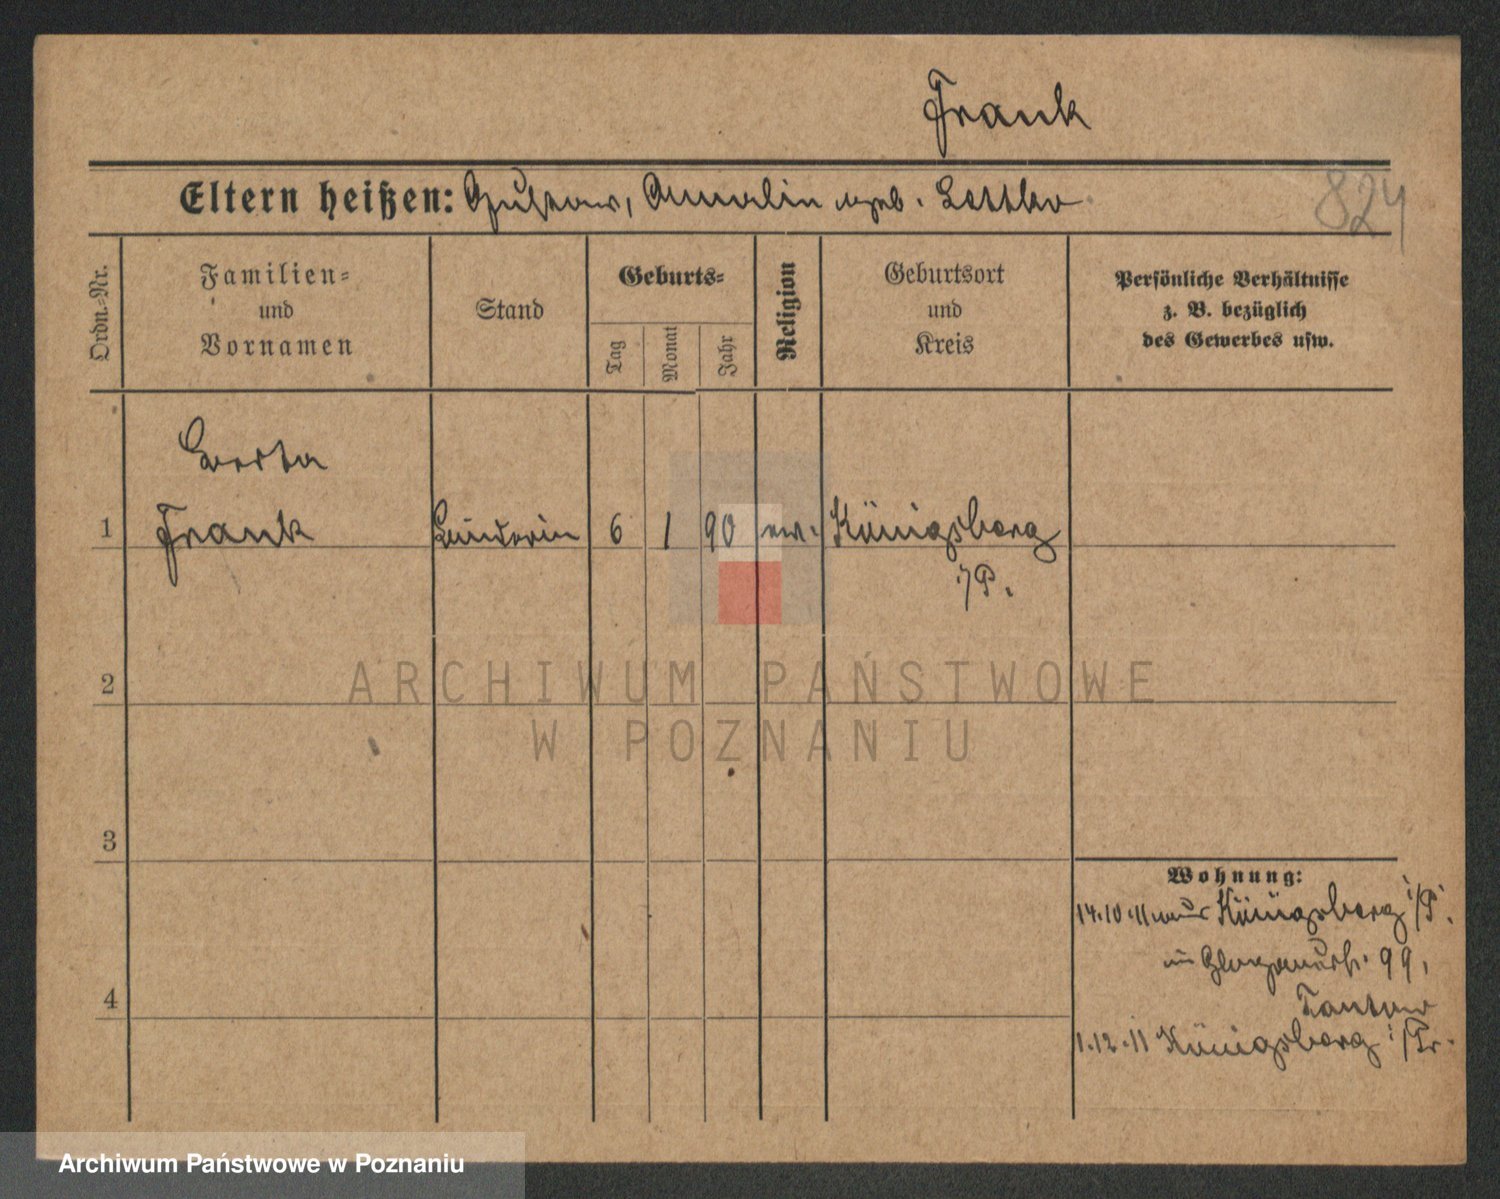 Frank
Eltern heißen: Gustav, Amalie geb. Lettko
824
Ordn.-Nr.
Familien-
und
Vornamen
Stand
Geburts-
Tag
Monat
Jahr
Religion
Geburtsort
und
Kreis
Persönliche Verhältnisse
z. B. bezüglich
des Gewerbes usw.
Berta
1 Frank 6 1 90 ev. Königsberg
i/P.
2
ARCHIWUM PAŃSTWOWE
W POZNANIU
3
Wohnung:
14.10.11 aus Königsberg i/P.
99,
4
1.12.11 Königsberg i/Pr.
Archiwum Państwowe w Poznaniu